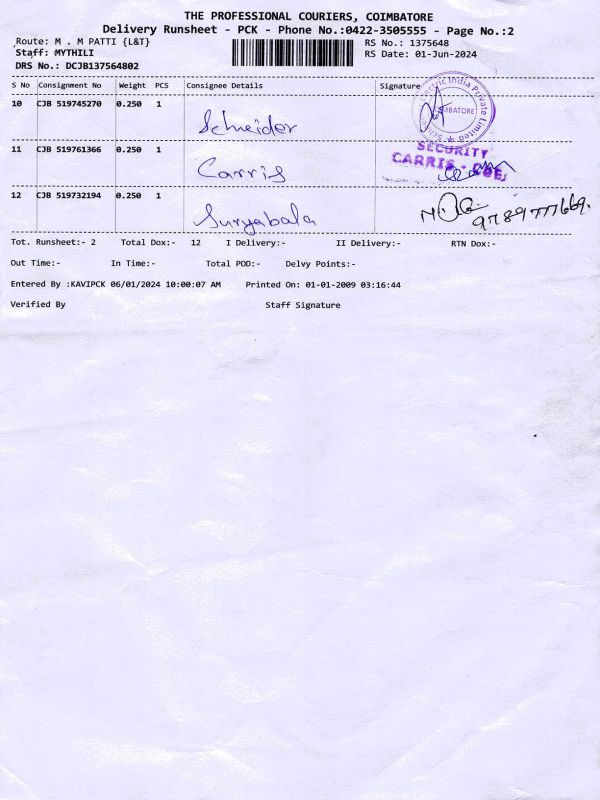 THE PROFESSIONAL COURIERS, COIMBATORE
Delivery Runsheet - PCK - Phone No.:0422-3505555 - Page No.:2
Route: M . M PATTI {L&T} RS No.: 1375648
Staff: MYTHILI RS Date: 01-Jun-2024
DRS No.: DCJB137564802
S No Consignment No Weight PCS Consignee Details Signature
10 CJB 519745270 0.250 1 Schneider
Electric India Private Limited
COIMBATORE
11 CJB 519761366 0.250 1 Carris
SECURITY
CARRIS - CBE
12 CJB 519732194 0.250 1 Suryabala
9789777669.
Tot. Runsheet:- 2 Total Dox:- 12 I Delivery:- II Delivery:- RTN Dox:-
Out Time:- In Time:- Total POD:- Delvy Points:-
Entered By :KAVIPCK 06/01/2024 10:00:07 AM Printed On: 01-01-2009 03:16:44
Verified By Staff Signature